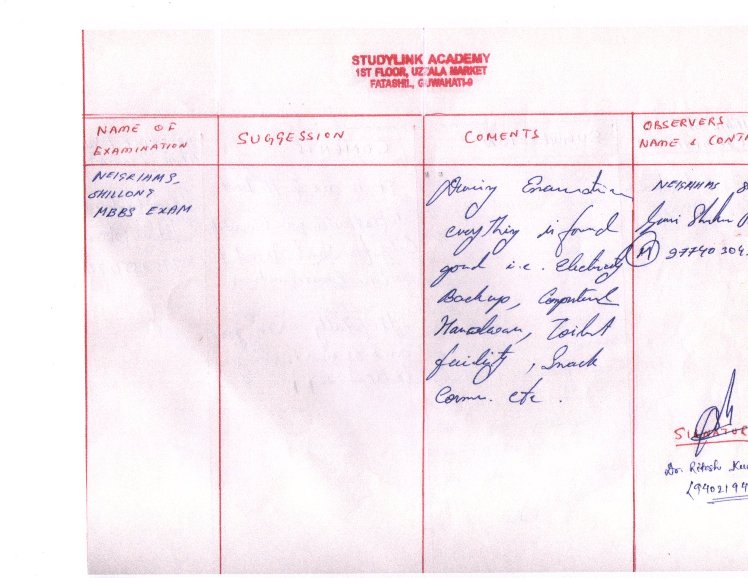 STUDYLINK ACADEMY
1ST FLOOR, UZALA MARKET
FATASHIL, GUWAHATI-9
NAME OF
EXAMINATION
SUGGESSION
COMENTS
OBSERVERS
NAME & CONTA
NEIGRIHMS,
SHILLONG
MBBS EXAM
During Examination
everything is found
good i.e. Electricity
Backup,
Toilet
facility, Snack
etc.
NEIGRIHMS
(M) 97740304
SIGNATUR
Dr. Ritesh Ku
(9402194